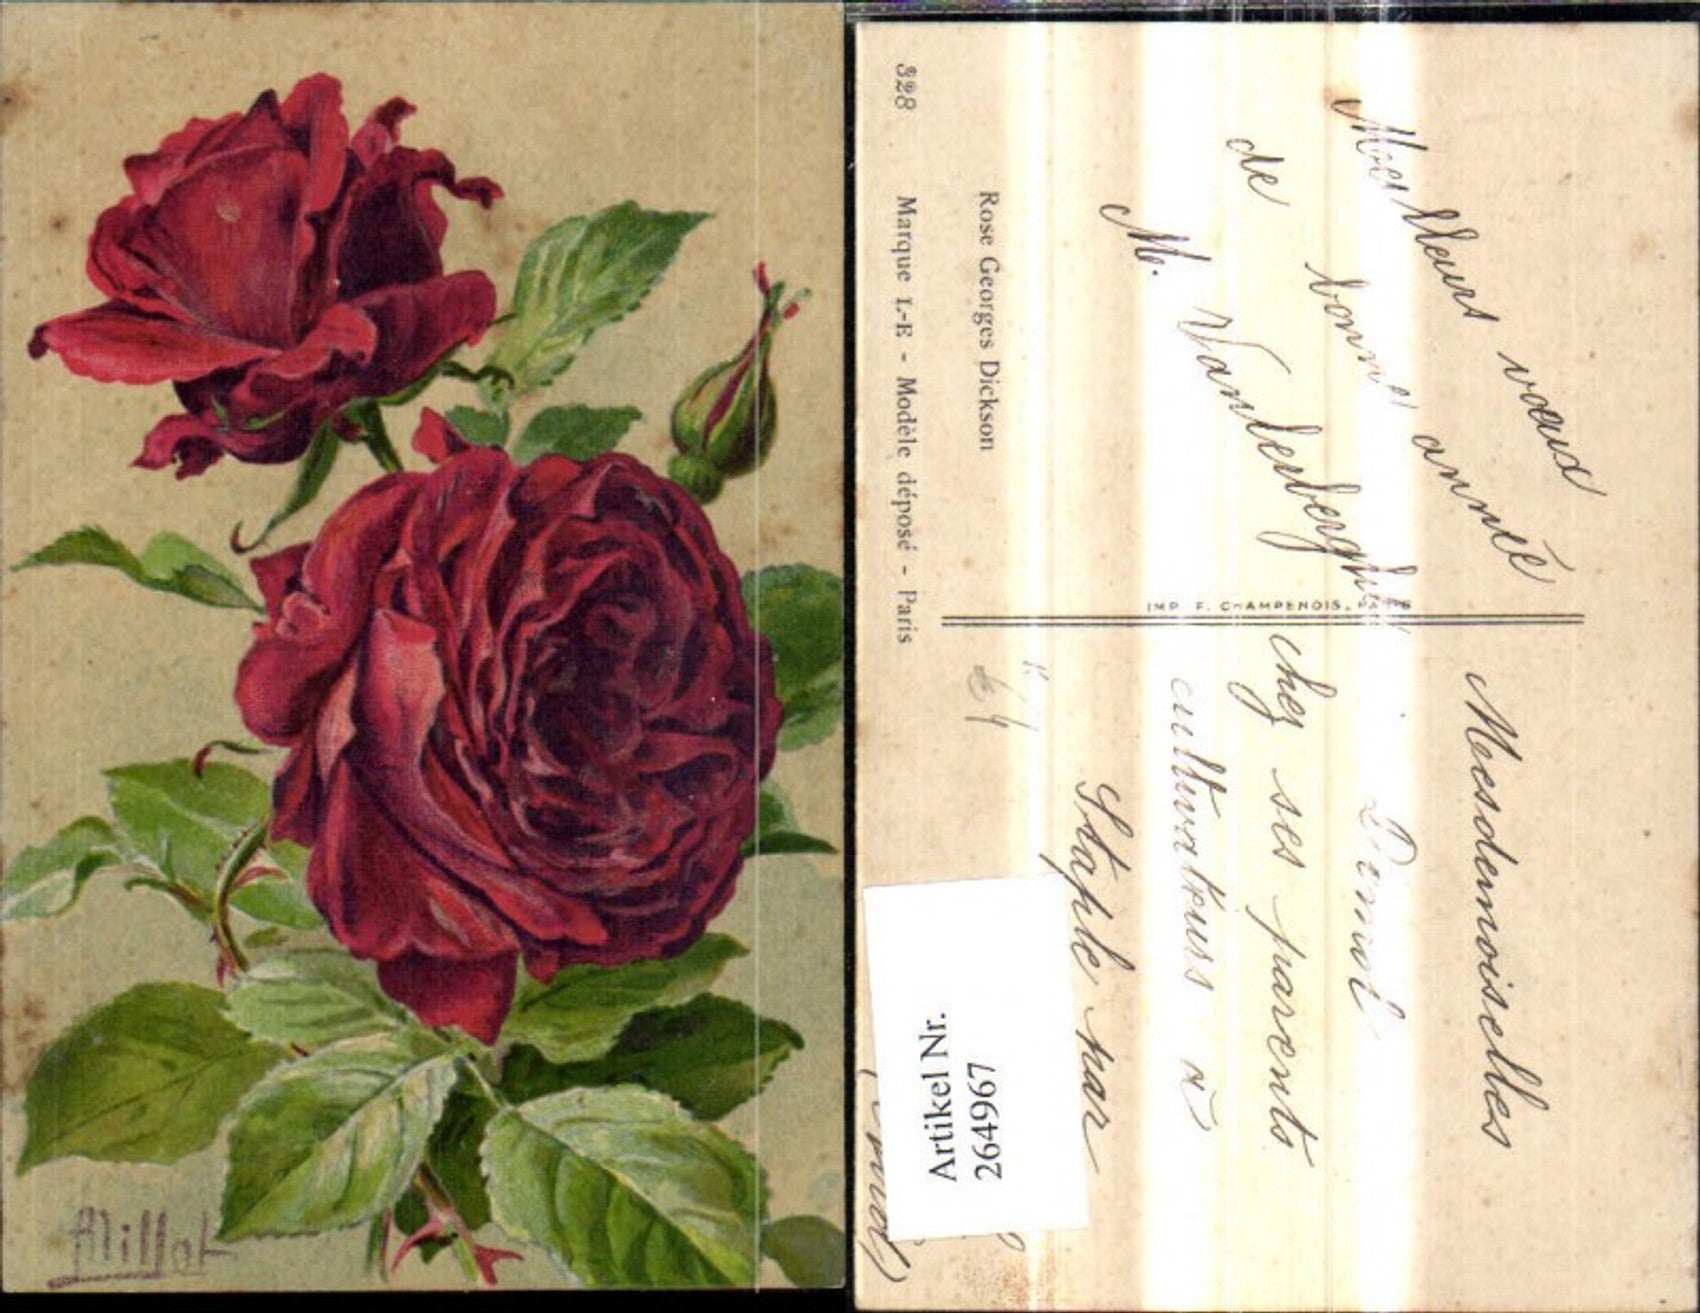 Millot
328
Marque L-E - Modèle déposé - Paris
Rose Georges Dickson
IMP. F. CHAMPENOIS, PARIS
Meilleurs vœux
de bonne année
M. Vanderberghe
Mesdemoiselles
chez ses parents
cultivateurs à
Staple par
(Nord)
Artikel Nr.
264967